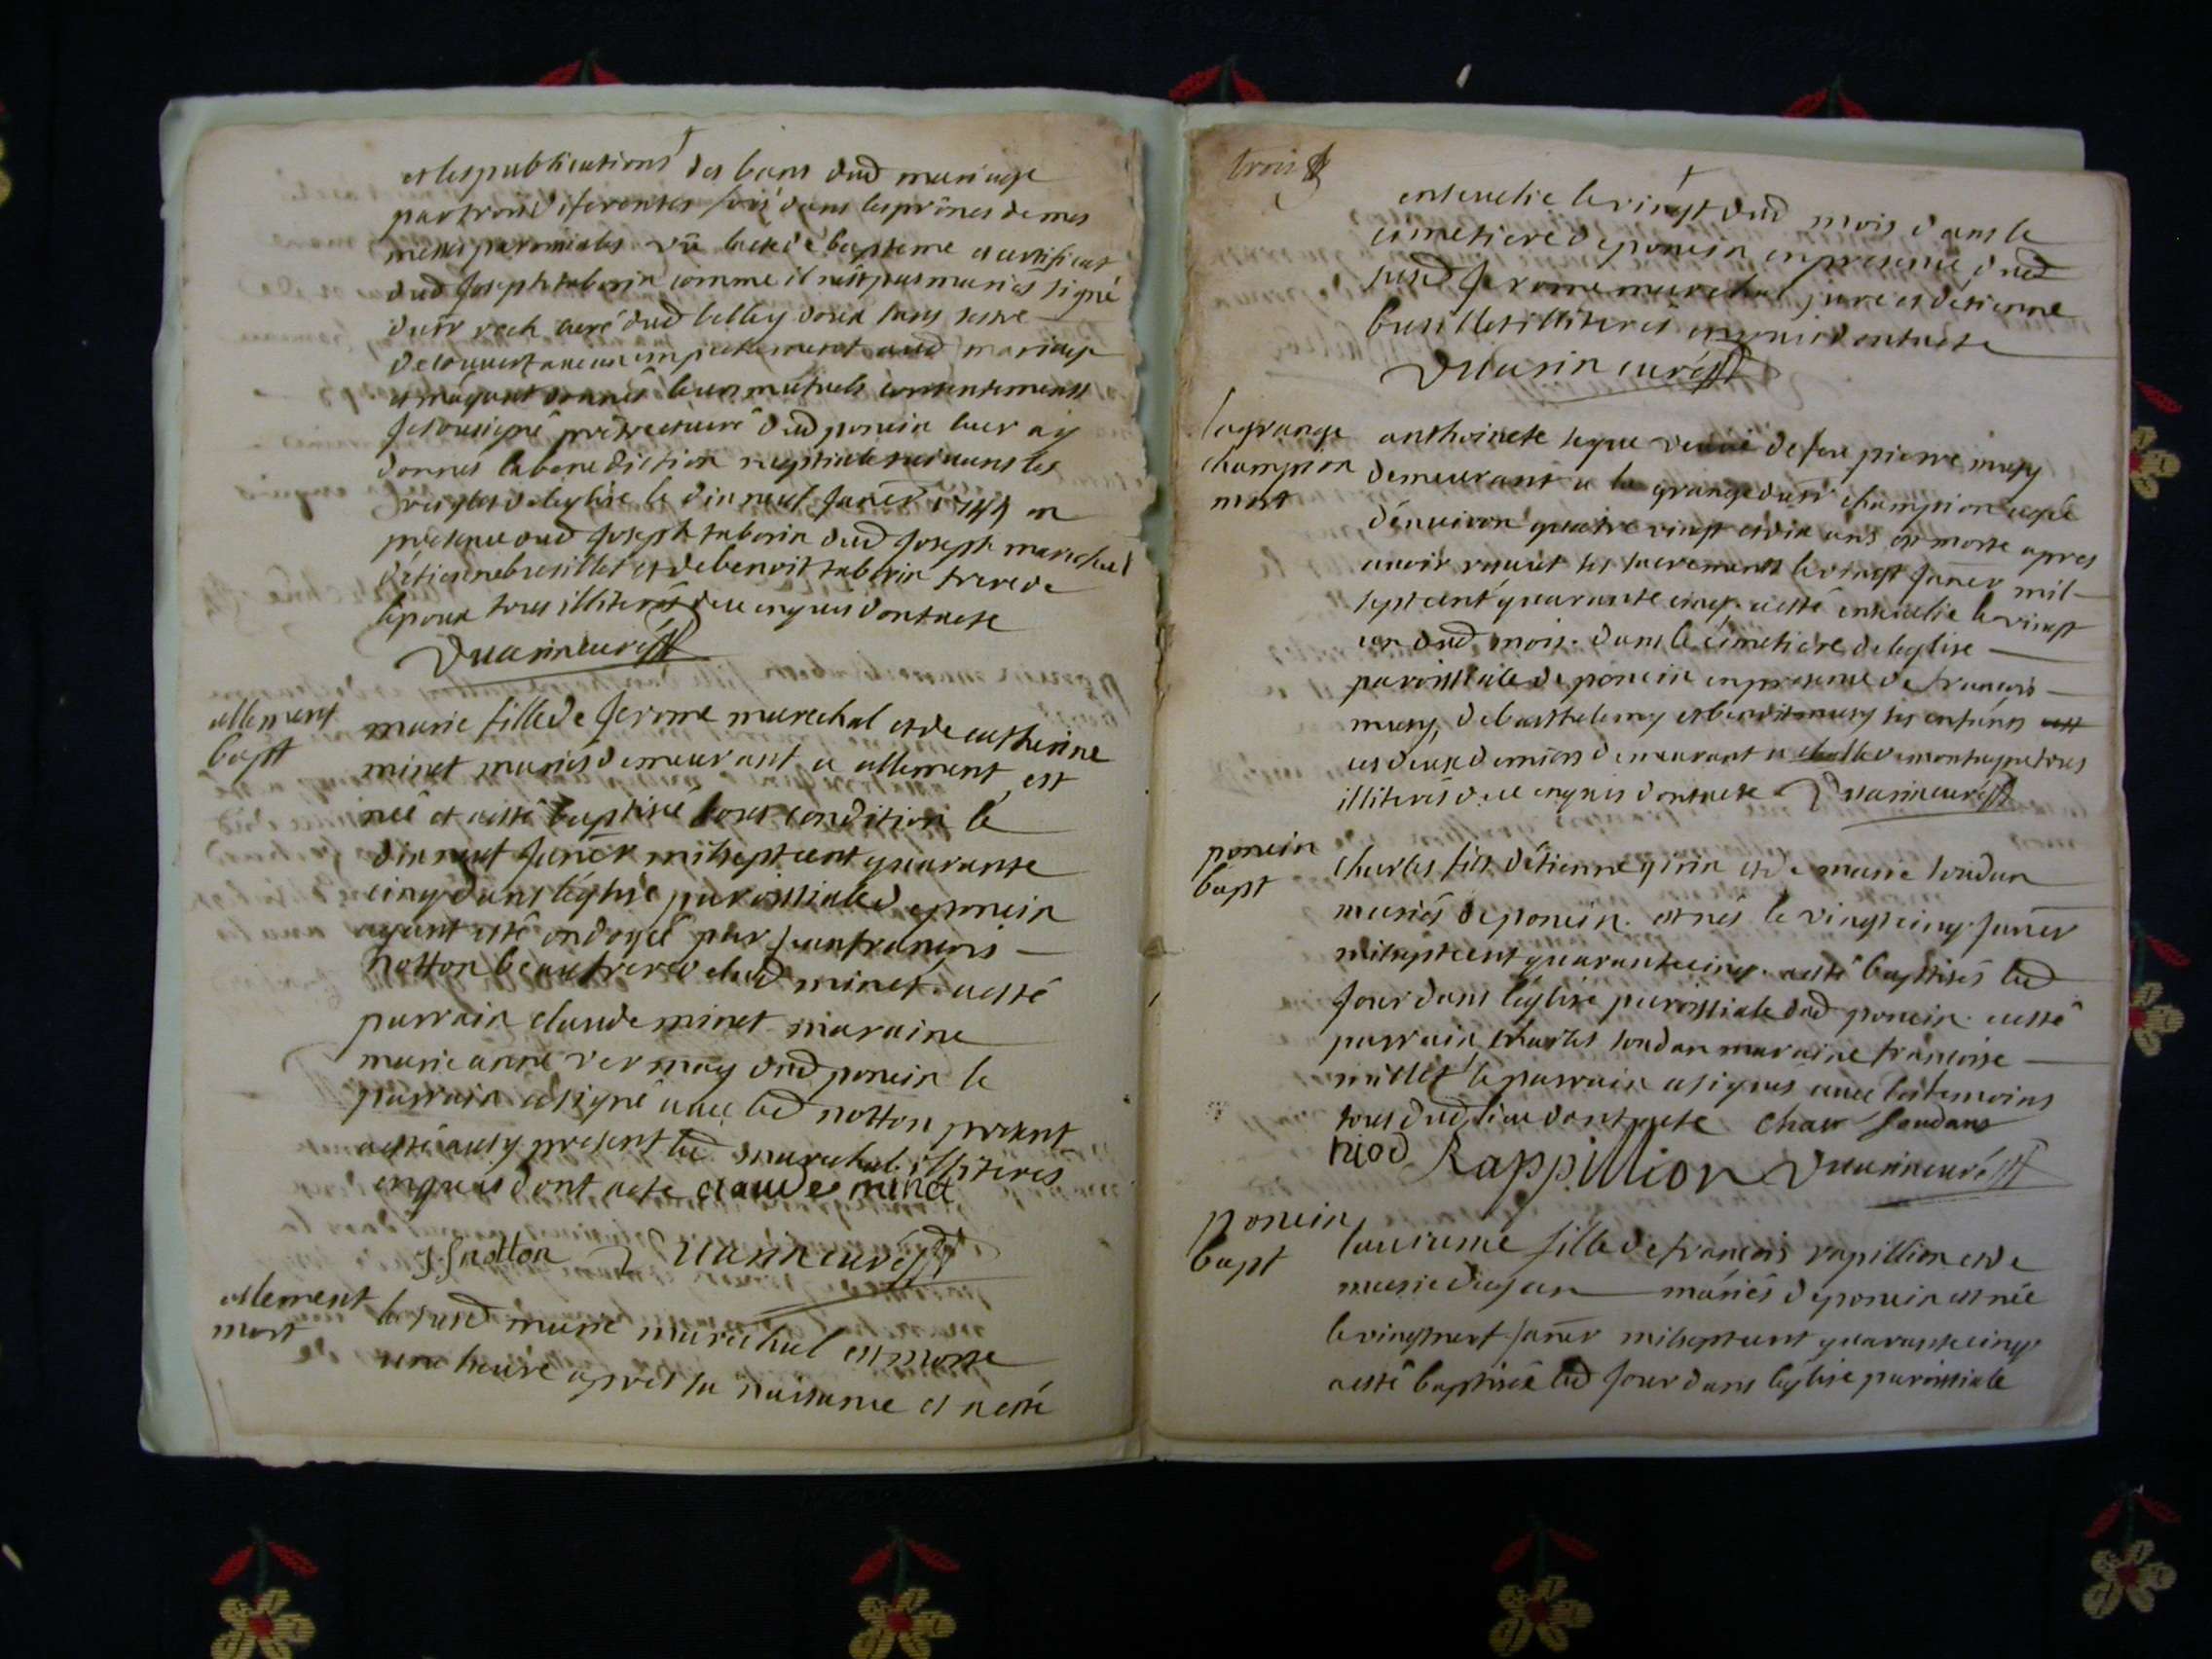 et les publications des bans dud mariage
par trois diferentes fois dans les prônes de mes
messes paroissiales vû lacte de bapteme et certificat
dud Joseph taborin comme il n'est pas mariés signé
du sr roch curé dud belley
decouvert aucun empechement aud mariage
et mayant donnés leurs mutuels consentements
Je soussigné prêtre et curé dud poncin leur ay
donnés la benediction nuptiale suivans les
reigles de leglise le dix neuf Janer 1745 en
presence dud Joseph taborin dud Joseph marechal
detienne brusillet et de benoit taborin frere de
lepoux tous illiterés deu enquis dont acte
Vuarin curé
allement
bapt
marie fille de Jerome marechal et de catherine
minet mariés demeurant a allement est
née et a esté baptisée sous condition le
dix neuf Janer mil sept cent quarante
cinq dans léglise paroissiale de poncin
ayant esté ondoyée par Jean francois
notton beaufrere dud minet a esté
parrain claude minet maraine
marie anne vermay dud poncin le
parrain a signé avec led notton present
a esté aussy present led marechal illiterés
enquis dont acte claude minet
J f notton Vuarin curé
allement
mort
la susd marie marechal est morte
une heure apres sa naissance et a esté
trois
ensevelie le vingt dud mois dans le
cimetiere de poncin en presence dud
susd Jerome marechal, pere et detienne
brusillet illiterés enquis dont acte
Vuarin curé
lagrange
champion
mort
anthoinete veuve de feu pierre mury
demeurant a la grange du sr champion agée
dénviron quatre vingt et dix ans est morte apres
avoir reçeut les sacrements le vingt Janer mil
sept cent quarante cinq. a esté ensevelie le vingt
un dud mois. dans le cimetiere de leglise
paroissiale de poncin en presence de francois
mury, de barthelemy et benoit mury ses enfants
ces deux derniers demeurant a challe de montagne tous
illiterés deu enquis dont acte Vuarin curé
poncin
bapt
charles fils détienne et de marie soudan
mariés de poncin. est nés le vingt cinq Janer
mil sept cent quarante cinq. a esté baptisés led
Jour dans léglise paroissiale dud poncin. a esté
parrain, charles soudan maraine francoise
millet le parrain a signés avec les temoins
tous dud lieu dont acte char soudans
niod Rappillion Vuarin curé
poncin
bapt
fille de francois rapillion et de
marie dujan mariés de poncin est née
le vingt neuf Janer mil sept cent quarante cinq
a esté baptisée led Jour dans léglise paroissiale